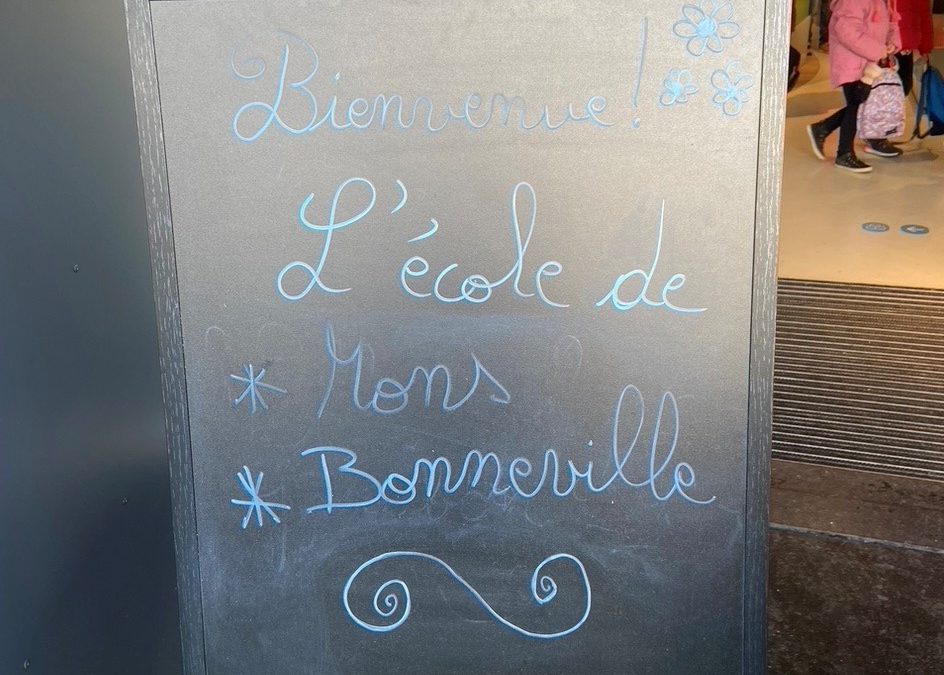 Bienvenue !
L'école de
* Mons
* Bonneville